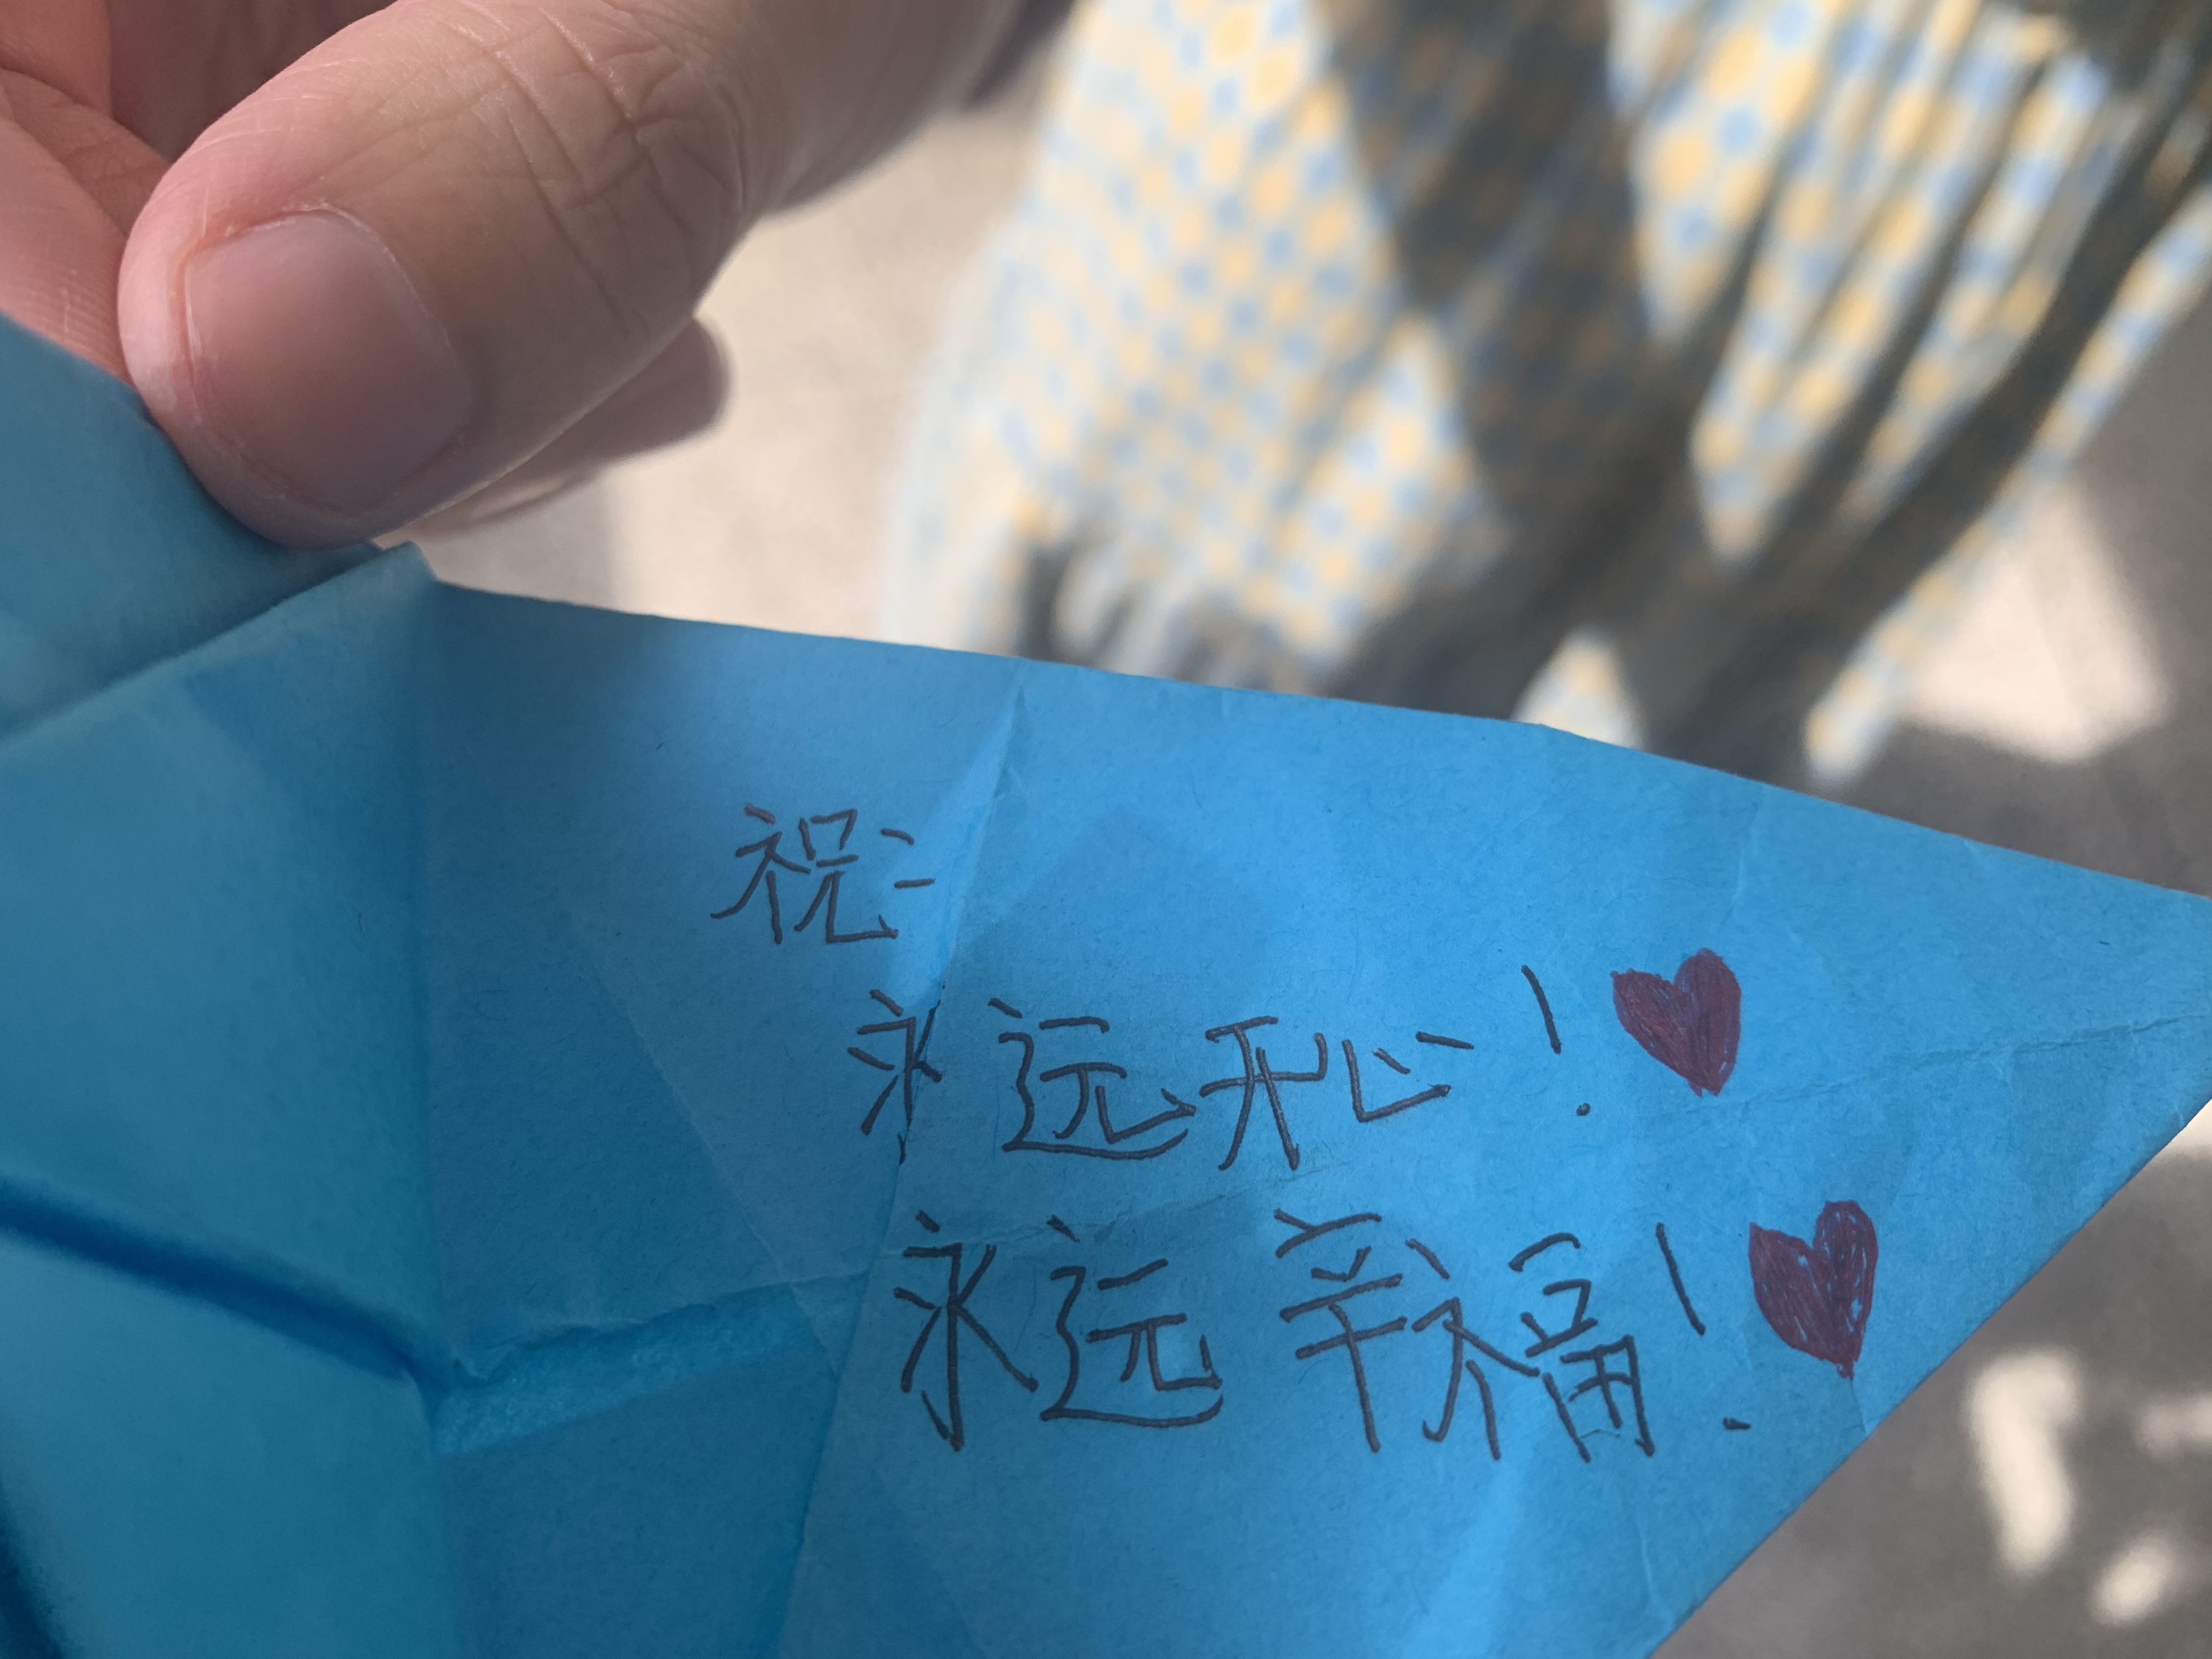 祝:
永远开心!
永远幸福!